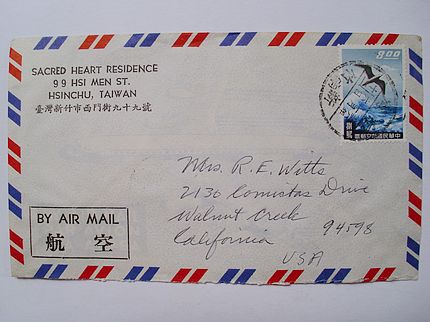 SACRED HEART RESIDENCE
99 HSI MEN ST.
HSINCHU, TAIWAN
臺灣新竹市西門街九十九號
8.00
航郵
票郵空航國民華中
Mrs. R. E. Witts
2130 Comistas Drive
Walnut Creek
California 94598
USA
BY AIR MAIL
航空